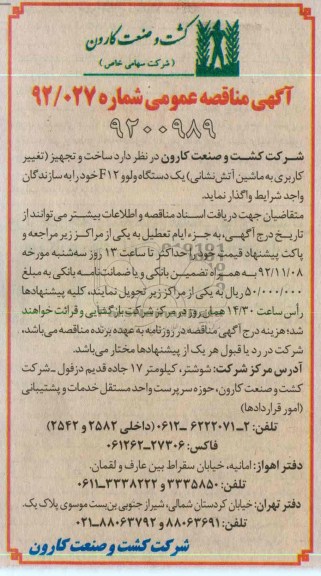 کشت و صنعت کارون
( شرکت سهامی خاص )
آگهی مناقصه عمومی شماره ۹۲/۰۲۷
۹۲۰۰۹۸۹
شرکت کشت و صنعت کارون در نظر دارد ساخت و تجهیز (تغییر
کاربری به ماشین آتش‌نشانی) یک دستگاه ولوو F۱۲ خود را به سازندگان
واجد شرایط واگذار نماید.
متقاضیان جهت دریافت اسناد مناقصه و اطلاعات بیشتر می‌توانند از
تاریخ درج آگهی، به جزء ایام تعطیل به یکی از مراکز زیر مراجعه و
پاکت پیشنهاد قیمت خود را حداکثر تا ساعت ۱۳ روز سه‌شنبه مورخه
۹۲/۱۱/۰۸ به همراه تضمین بانکی و یا ضمانت‌نامه بانکی به مبلغ
۵۰/۰۰۰/۰۰۰ ریال به یکی از مراکز زیر تحویل نمایند، کلیه پیشنهادها
رأس ساعت ۱۴/۳۰ همان روز در مرکز شرکت بازگشایی و قرائت خواهند
شد؛ هزینه درج آگهی مناقصه در روزنامه به عهده برنده مناقصه می‌باشد،
شرکت در رد یا قبول هر یک از پیشنهادها مختار می‌باشد.
آدرس مرکز شرکت: شوشتر، کیلومتر ۱۷ جاده قدیم دزفول ـ شرکت
کشت و صنعت کارون، حوزه سرپرست واحد مستقل خدمات و پشتیبانی
(امور قراردادها)
تلفن: ۲ـ۶۲۲۲۰۷۱ ـ۰۶۱۲ (داخلی ۲۵۸۲ و ۲۵۴۲)
فاکس: ۲۷۳۰۶ـ۰۶۱۲۶۲
دفتر اهواز: امانیه، خیابان سقراط بین عارف و لقمان.
تلفن: ۳۳۳۵۸۵۰ و ۳۳۳۸۲۲۲ـ۰۶۱۱
دفتر تهران: خیابان کردستان شمالی، شیراز جنوبی بن‌بست موسوی پلاک یک.
تلفن: ۸۸۰۶۳۶۹۱ و ۸۸۰۶۳۷۹۲ـ۰۲۱
شرکت کشت و صنعت کارون